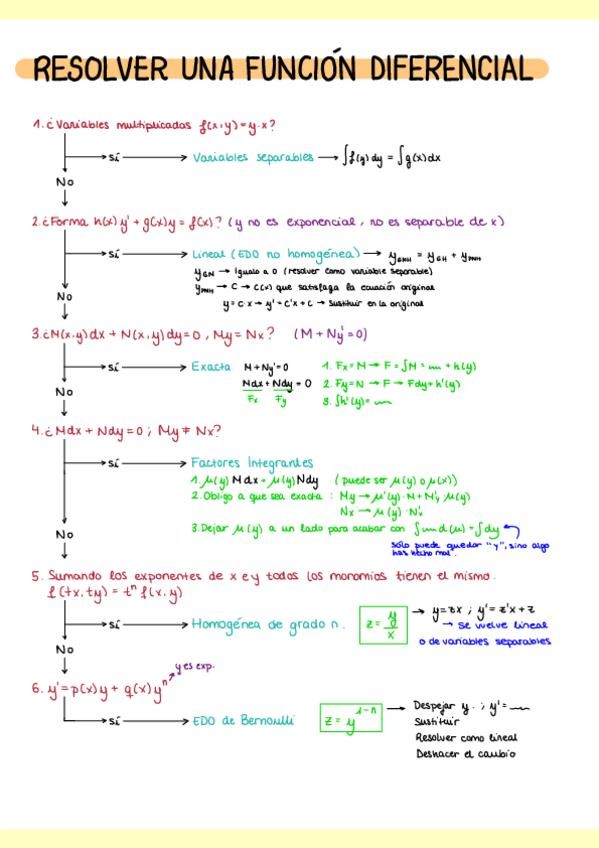 RESOLVER UNA FUNCIÓN DIFERENCIAL
1. ¿Variables multiplicadas f(x,y)=y·x?
sí → Variables separables → ∫f(y)dy = ∫g(x)dx
No
2. ¿Forma h(x)y' + g(x)y = f(x)? (y no es exponencial, no es separable de x)
sí → Lineal (EDO no homogénea) → y_GNH = y_GH + y_PNH
y_GN → Igualo a 0 (resolver como variable separable)
y_PNH → C → C(x) que satisfaga la ecuación original
y = C·x → y' = C'x + C → Sustituir en la original
No
3. ¿N(x,y)dx + N(x,y)dy = 0, My = Nx? (M + Ny' = 0)
sí → Exacta M+Ny'=0 1. Fx = M → F = ∫M = + h(y)
Mdx + Ndy = 0 2. Fy = N → F → Fdy + h'(y)
Fx Fy 3. ∫h'(y) =
No
4. ¿Mdx + Ndy = 0; My ≠ Nx?
sí → Factores Integrantes
1. μ(y)Mdx + μ(y)Ndy (puede ser μ(y) o μ(x))
2. Obligo a que sea exacta: My → μ'(y)·M + M'y μ(y)
Nx → μ(y)·N'x
3. Dejar μ(y) a un lado para acabar con ∫ d(μ) = ∫dy
No
solo puede quedar "y", sino algo
has hecho mal.
5. Sumando los exponentes de x e y todos los monomios tienen el mismo.
f(tx,ty) = tⁿ f(x,y)
sí → Homogénea de grado n. z = y/x → y = zx; y' = z'x + z
→ se vuelve lineal
o de variables separables
No
y es exp.
6. y' = p(x)y + q(x)yⁿ
sí → EDO de Bernoulli z = y¹⁻ⁿ → Despejar y.; y' =
Sustituir
Resolver como lineal
Deshacer el cambio